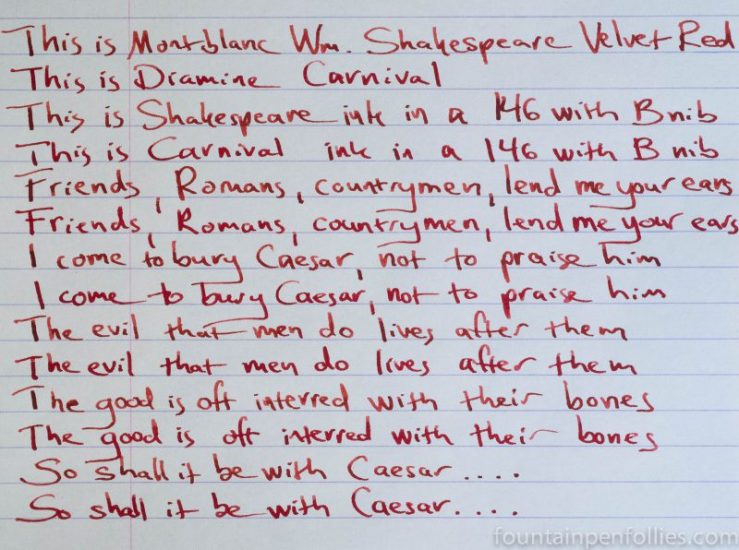 This is Montblanc Wm. Shakespeare Velvet Red
This is Diamine Carnival
This is Shakespeare ink in a 146 with B nib
This is Carnival ink in a 146 with B nib
Friends, Romans, countrymen, lend me your ears
Friends, Romans, countrymen, lend me your ears
I come to bury Caesar, not to praise him
I come to bury Caesar, not to praise him
The evil that men do lives after them
The evil that men do lives after them
The good is oft interred with their bones
The good is oft interred with their bones
So shall it be with Caesar....
So shall it be with Caesar....
fountainpenfollies.com